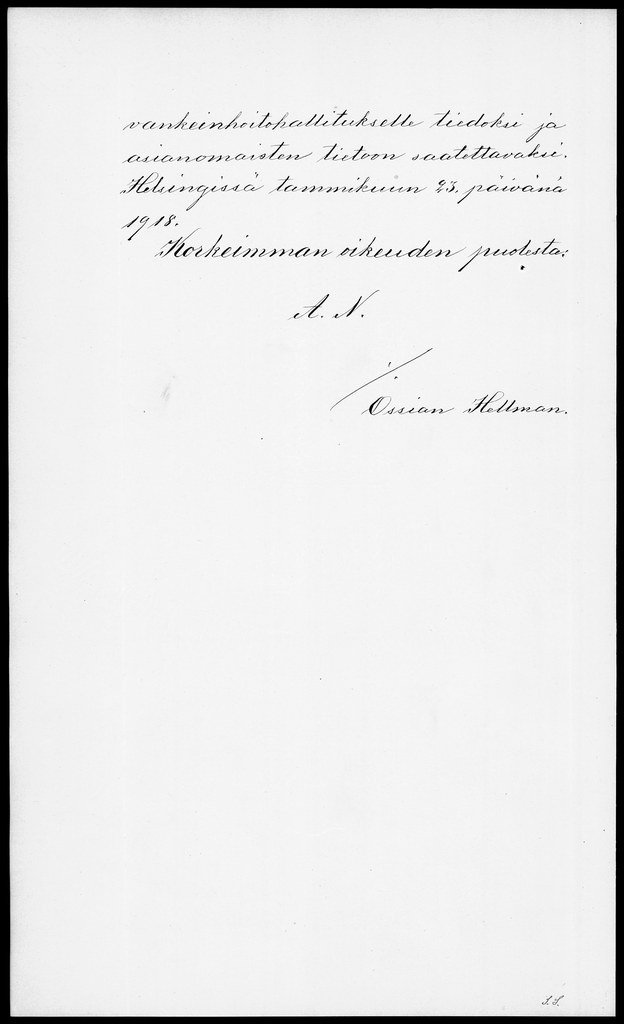 vankeinhoitohallitukselle tiedoksi ja
asianomaisten tietoon saatettavaksi.
Helsingissä tammikuun 23. päivänä
1918.
Korkeimman oikeuden puolesta:
A. N.
/.
Ossian Hellman.
S.S.